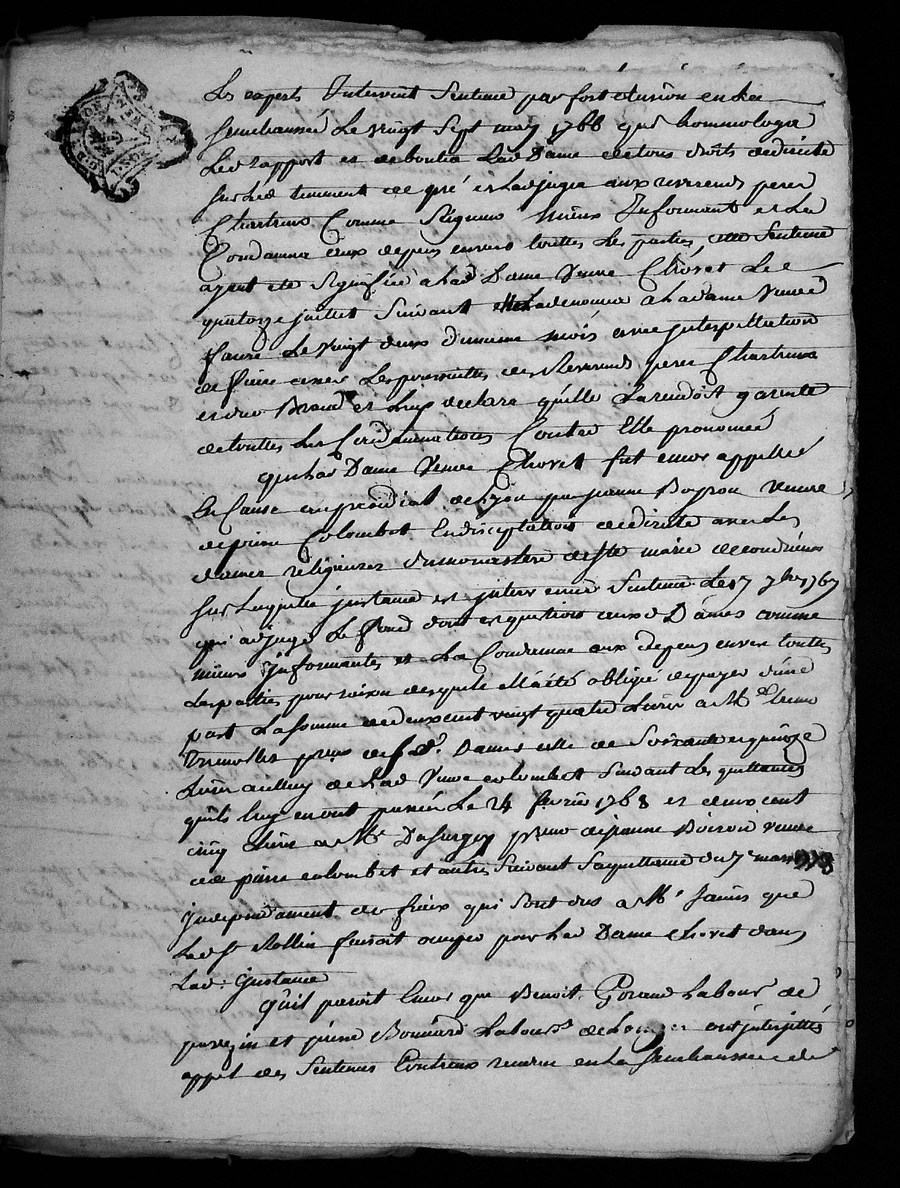 Les experts Intervint Sentence par forclusion en la
senechaussée Le vingt Sept may 1768 qui hommologua
Led rapport et debouta Lad Dame de tous droits de directe
sur Led tennement de et Ladjugea aux reverends peres
Chartreux Comme Seigneurs mieux Informant et La
Condamna aux depens envers touttes Les parties, cette Sentence
ayant eté Signifiée a Lad Dame Veuve Chovet Le
quatorze juillet Suivant La denonca a La dame Veuve
faure Le vingt deux du meme mois avec jnterpellation
de faire cesser Les poursuittes des Reverends peres Chartreux
et dud et Luy declara quelle La rendoit garente
de touttes Les Condamnations Contre Elle prononcé
que Lad Dame Veuve Chovet fut encor appellée
En Cause en presidial de Lyon par jeanne Boyron veuve
de pierre Colombet En disceptation de directe avec Les
dames religieuses du monastere de Ste marie de condrieux
sur Laquelle jnstance est jntervenue Sentence Le 17 7bre 1767
qui adjuge Le fond dont est question auxd Dames comme
mieux jnformantes et La Condamne aux depens envers touttes
Les parties pour raison desquels elle a été obligée de payer d'une
part La somme de deux cent vingt quatre Livres a Me
 desd. Dames celle de Soixante et quinze
Livres a celluy de Lad Veuve colombet Suivant Les quittances
quils luy en ont passées Le 24 fevrier 1768 et de cent
cinq Livres a Me de jeanne Boiron veuve
de pierre colombet et autres Suivant Sa quittance du 7e mars
jndependament des fraix qui Sont dus a Mr janin que
Led Sr Rollin faisoit occuper pour Lad Dame Chovet dans
Lad: jnstance
Qu'il paroit Encor que Benoit Labour de
 et pierre Bonnard Labour de ont jnterjettés
appel des Sentences Contreux rendues en La Senechaussée de